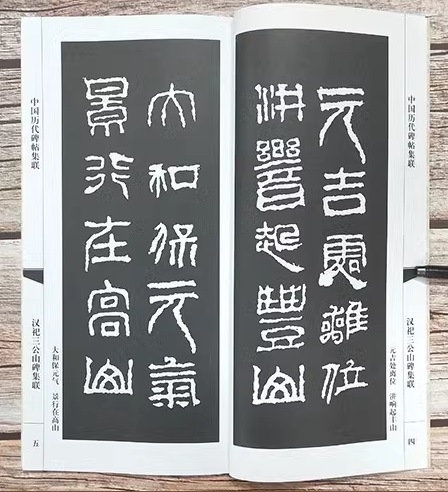 中国历代碑帖集联
汉祀三公山碑集联
四
元吉處離位
洪響起豐山
元吉处离位 洪响起丰山
大和保元氣
景行在高山
大和保元气 景行在高山
中国历代碑帖集联
汉祀三公山碑集联
五